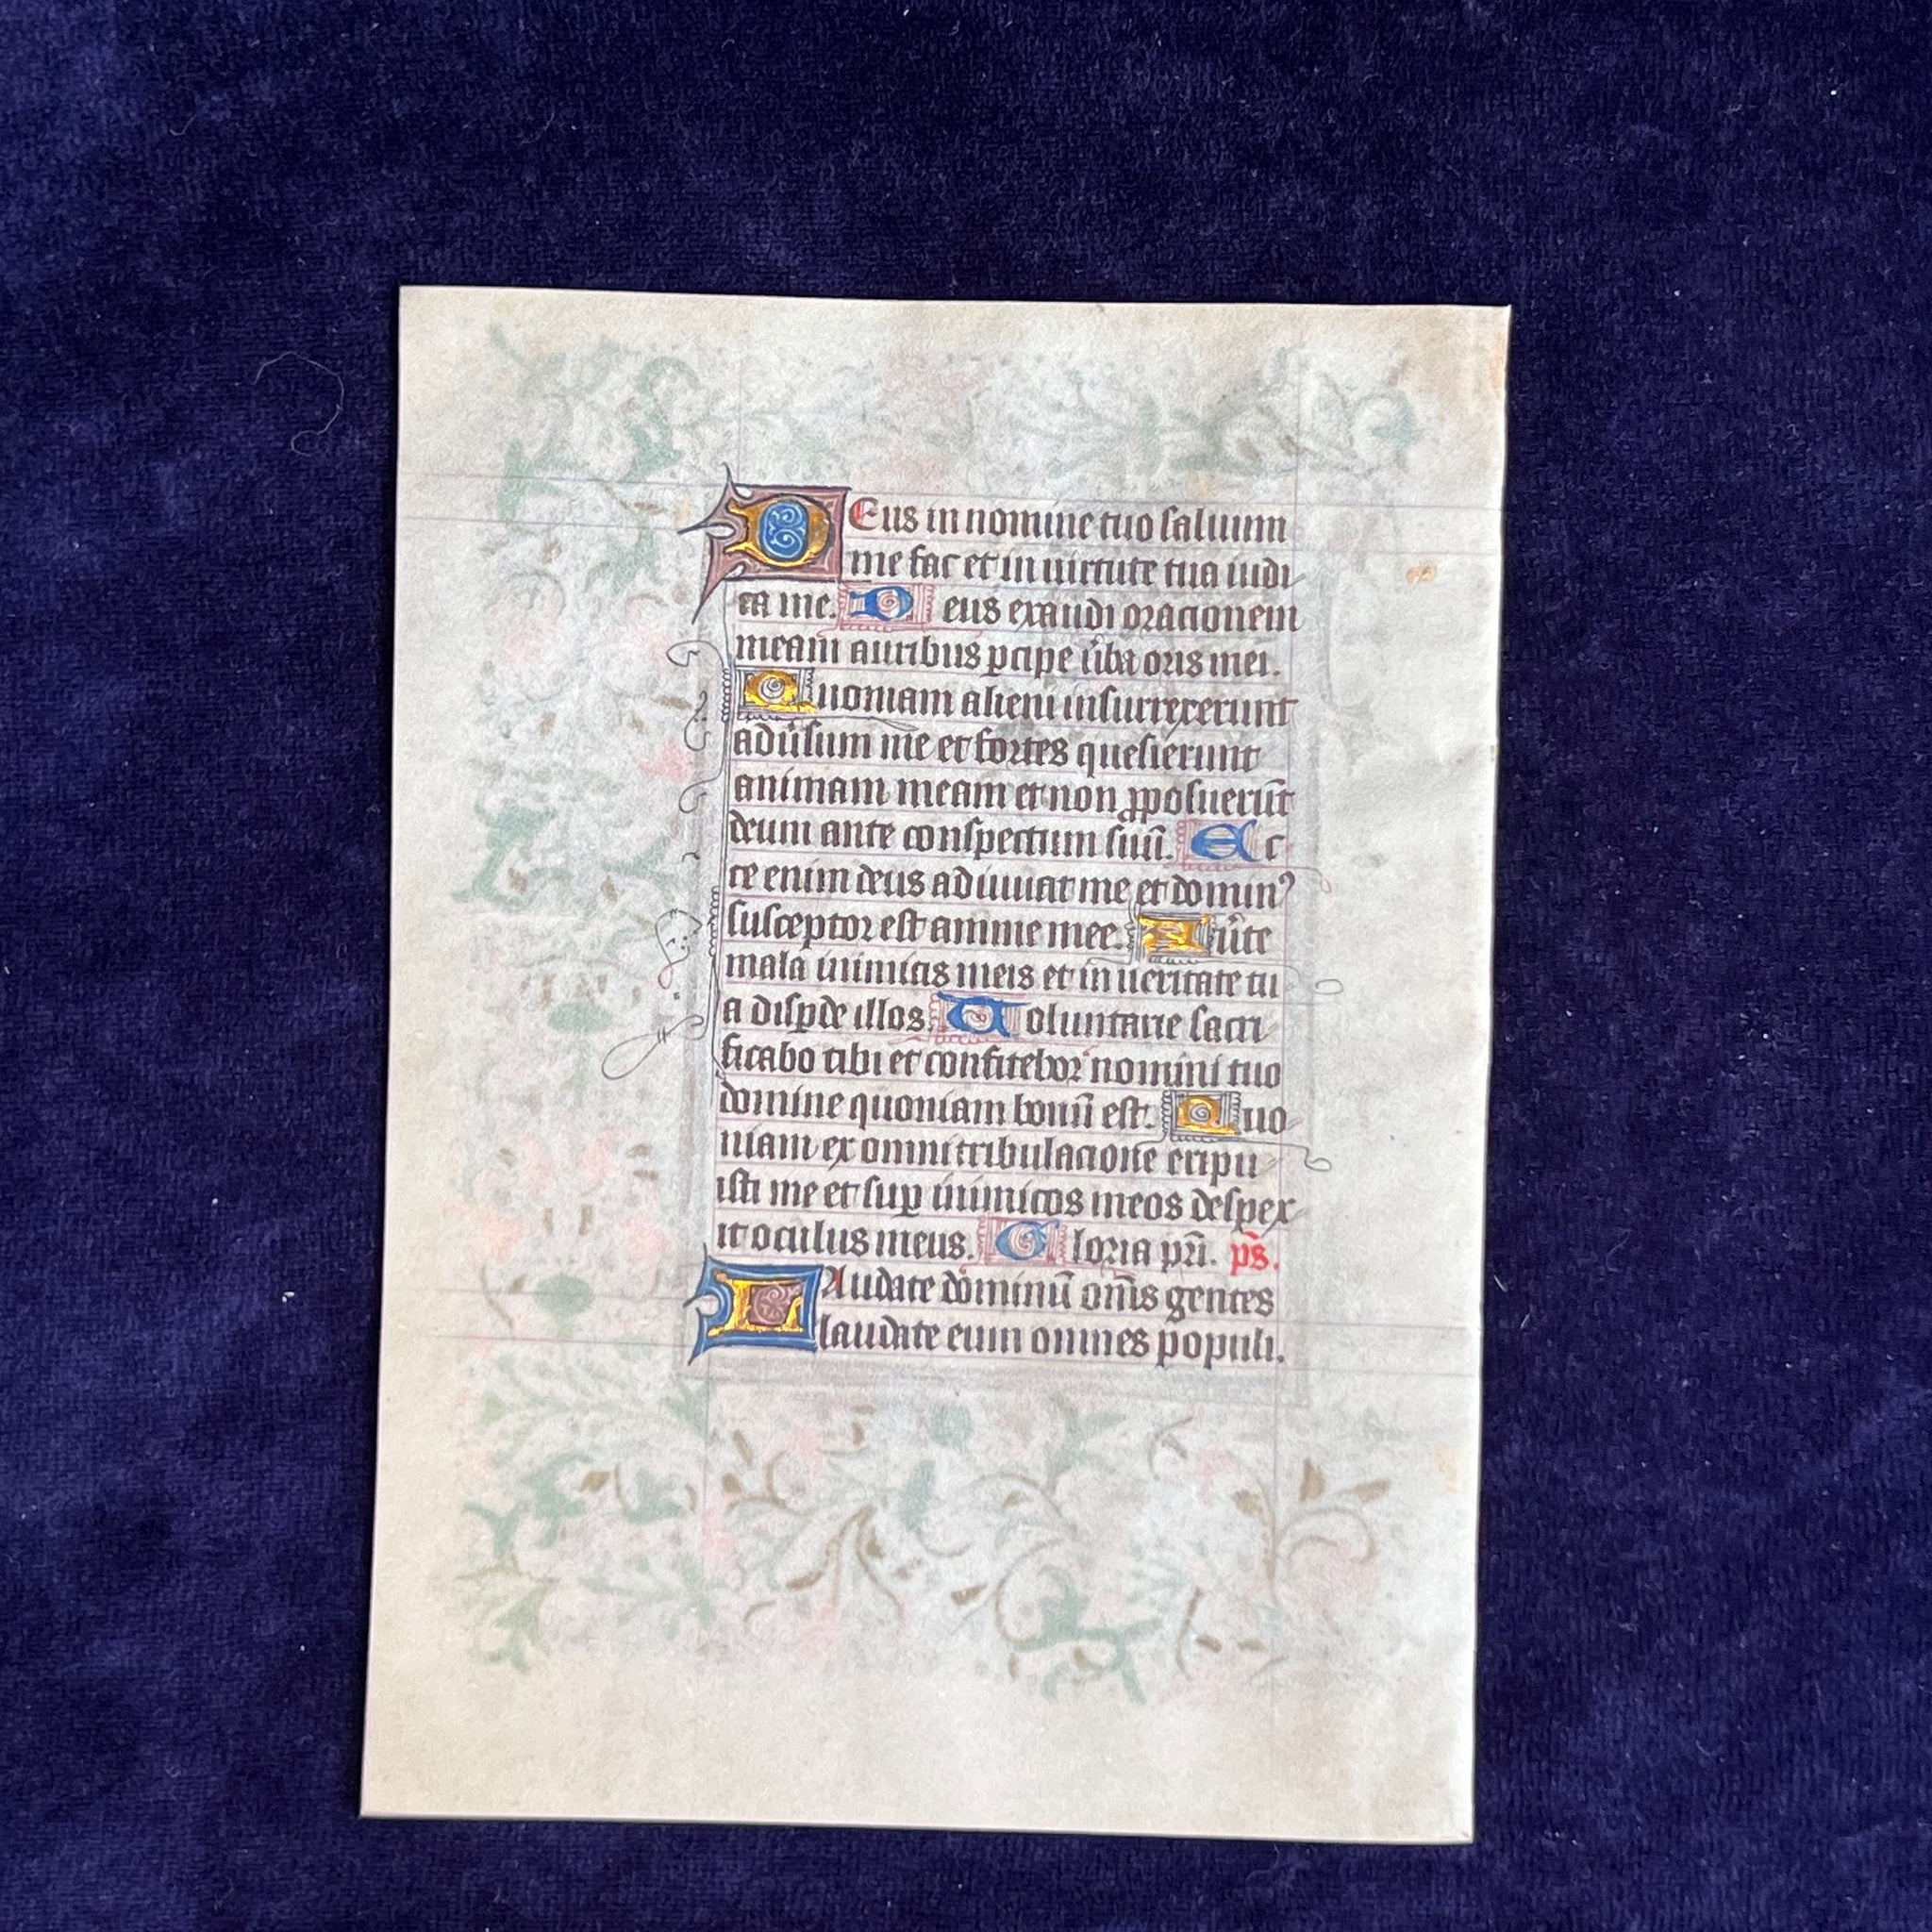 DEus in nomine tuo saluum
me fac et in uirtute tua iudi
ca me. Deus exaudi orationem
meam auribus ꝑcipe u̓ba oris mei.
Quoniam alieni insurrexerunt
adu̓sum me et fortes quesierunt
animam meam et non ꝓposuerūt
deum ante conspectum suū. Ec
ce enim deus adiuuat me et dominꝰ
susceptor est anime mee. Au̓te
mala inimicis meis et in ueritate tu
a disꝑde illos. Uoluntarie sacri
ficabo tibi et confitebor nomini tuo
domine quoniam bonū est. Quo
niam ex omni tribulatione eripu
isti me et suꝑ inimicos meos despex
it oculus meus. Gloria pr̄i. ps̄.
LAudate dominū om̄s gentes
laudate eum omnes populi.